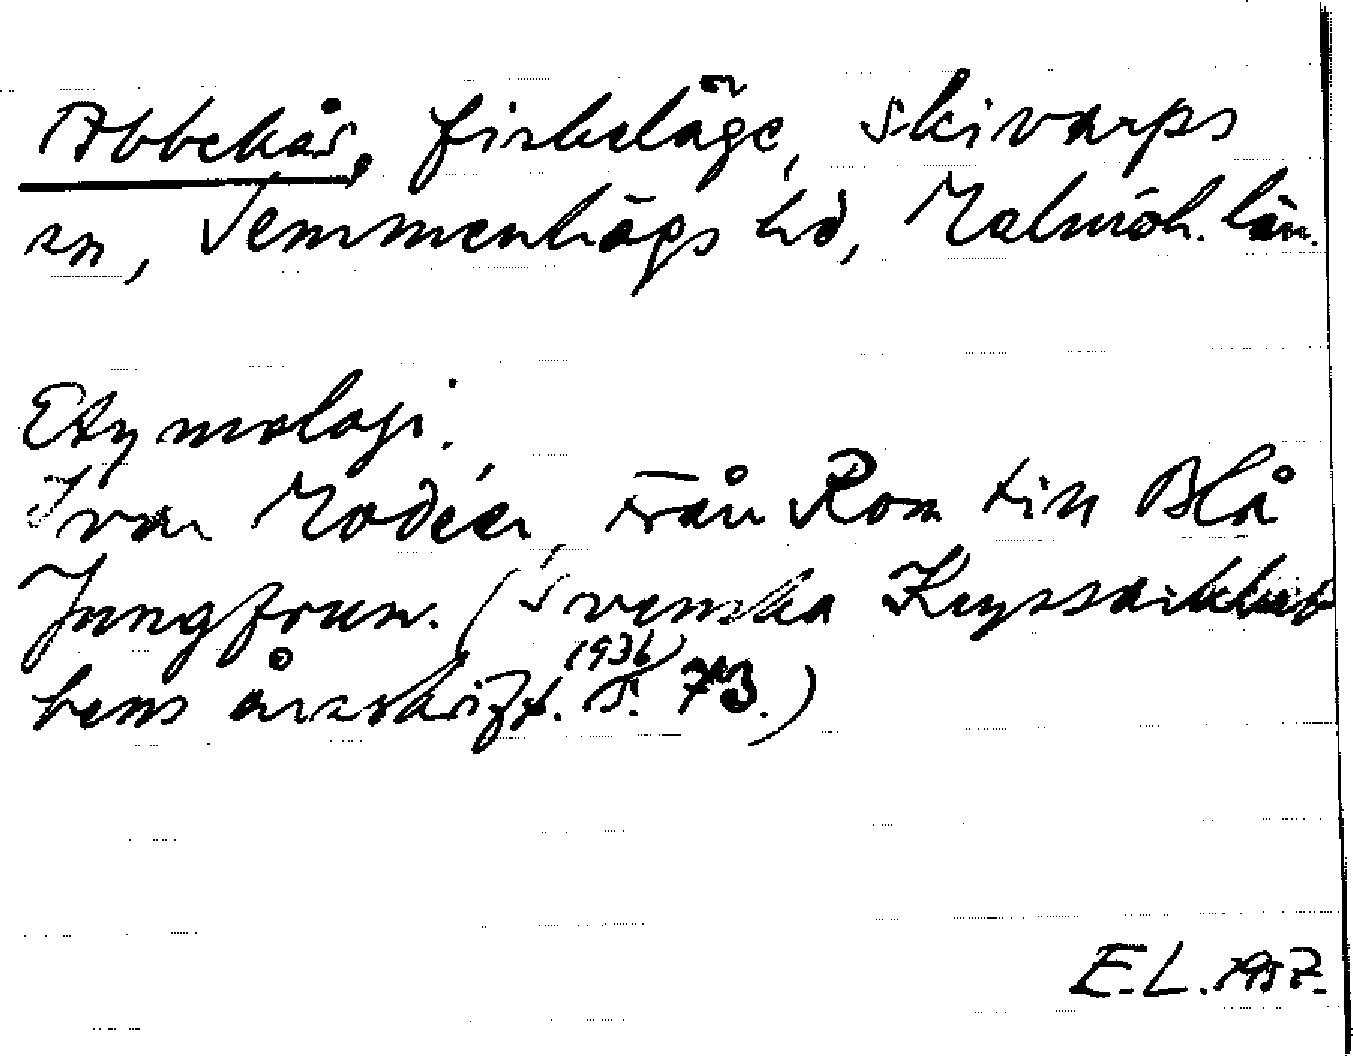 Abbekås, fiskeläge, Skivarps
sn, Vemmenhögs hd, Malmöh. län.
Etymologi.
Ivar Modéer, Från Rom till Blå
Jungfrun. (Svenska Kryssarklub
bens årsskrift. (1936) S. 73.)
E.L. 1957.